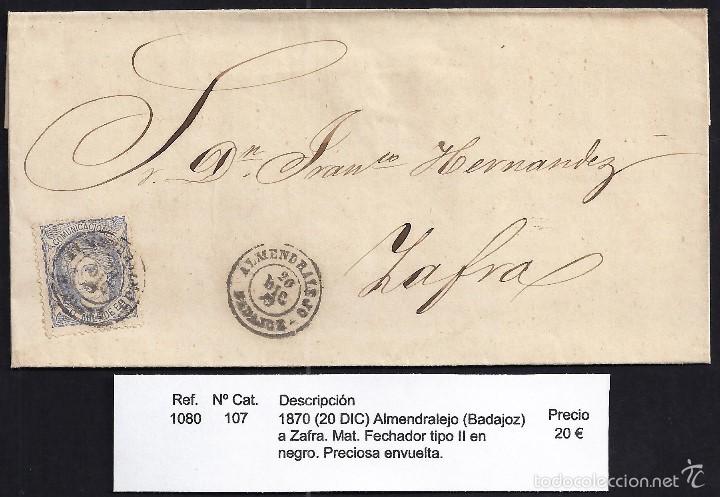 Sr. Dn. Franco Hernandez
Zafra
COMUNICACIONES
ALMENDRALEJO
20
DIC
BADAJOZ
Ref. Nº Cat. Descripción Precio
1080 107 1870 (20 DIC) Almendralejo (Badajoz) 20 €
a Zafra. Mat. Fechador tipo II en
negro. Preciosa envuelta.
todocoleccion